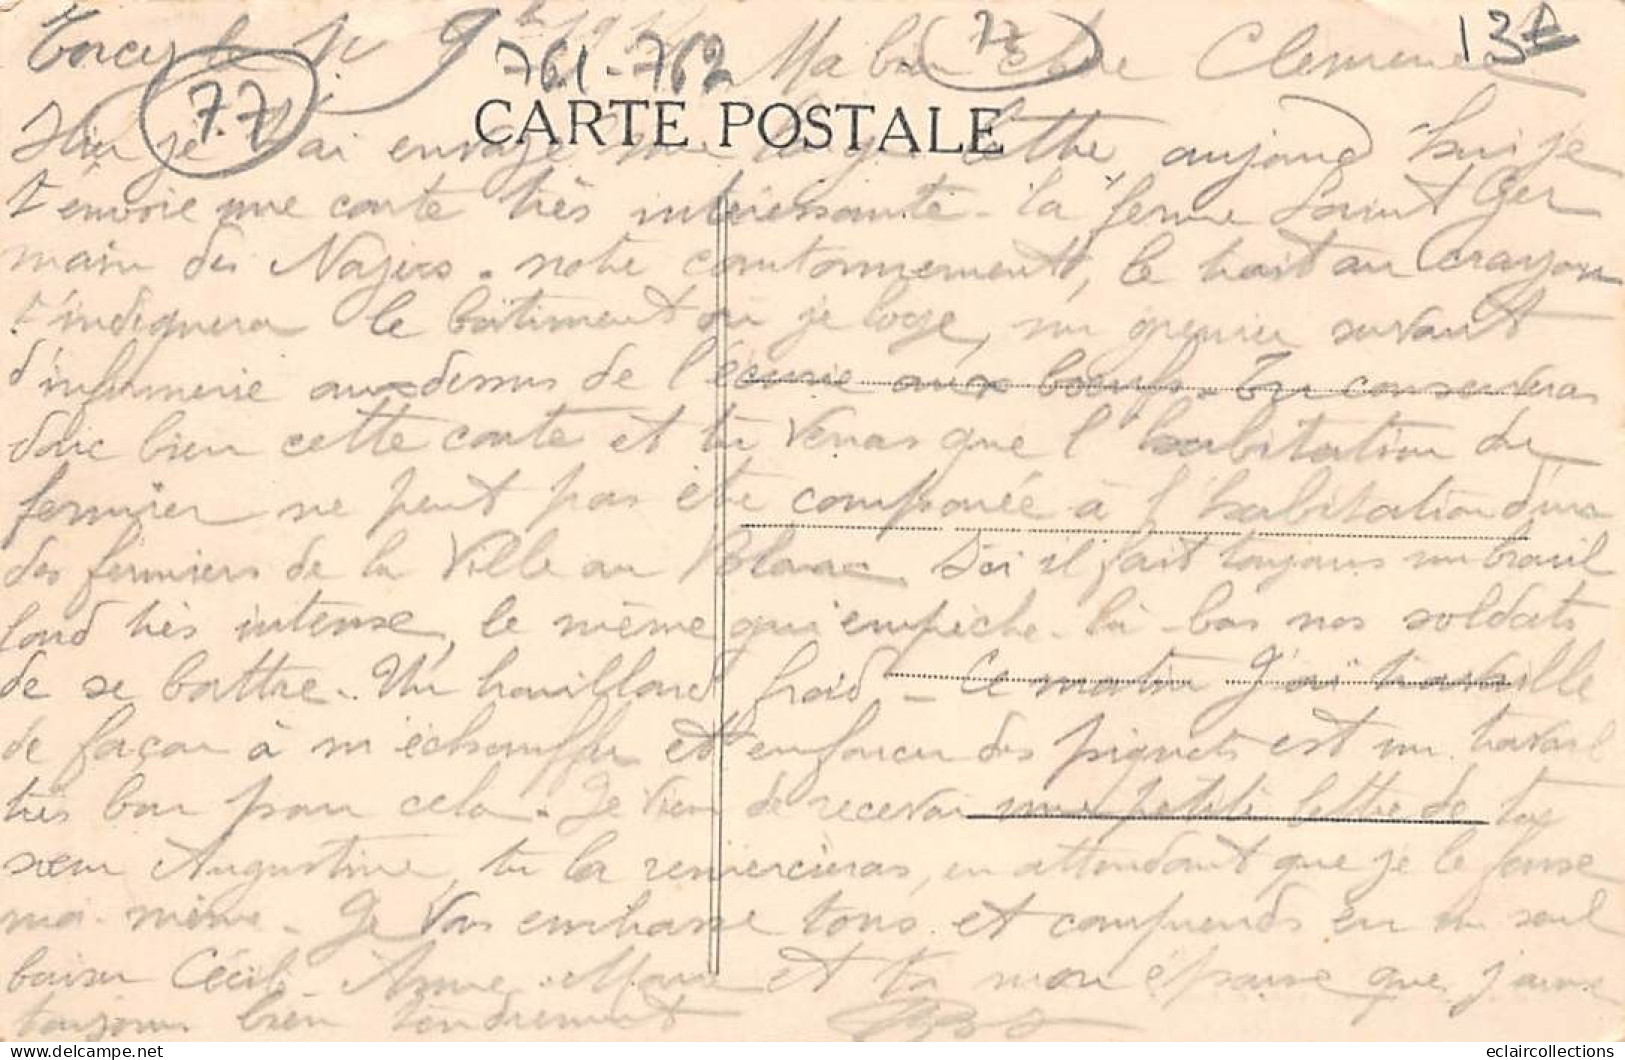 Torcy le 9 Ma bien Chère Clemence
77 77 13
761-762
CARTE POSTALE
Hier je t'ai envoyé une longue lettre aujourd'hui je
t'envoie une carte très intéressante - la ferme Saint Ger
main des Noyers. notre cantonnement, le trait au crayon
t'indiquera le bâtiment où je loge, un grenier servant
d'infirmerie au dessus de l'écurie aux boeufs. Tu conserveras
donc bien cette carte et tu verras que l'habitation du
fermier ne peut pas être comparée à l'habitation
des fermiers de la Ville au Blanc. Ici il fait toujours un brouil
lard très intense, le même qui empêche là-bas nos soldats
de se battre. Un brouillard froid - Ce matin j'ai travaillé
de façon à m'échauffer et enfoncer des piquets est un travail
très bon pour cela. Je viens de recevoir une petite lettre de ta
soeur Augustine, tu la remercieras, en attendant que je le fasse
moi-même. Je vous embrasse tous et comprends en un seul
baiser Cécile Anne Marie et ta mon épouse que j'aime
toujours bien tendrement
eclaircollections